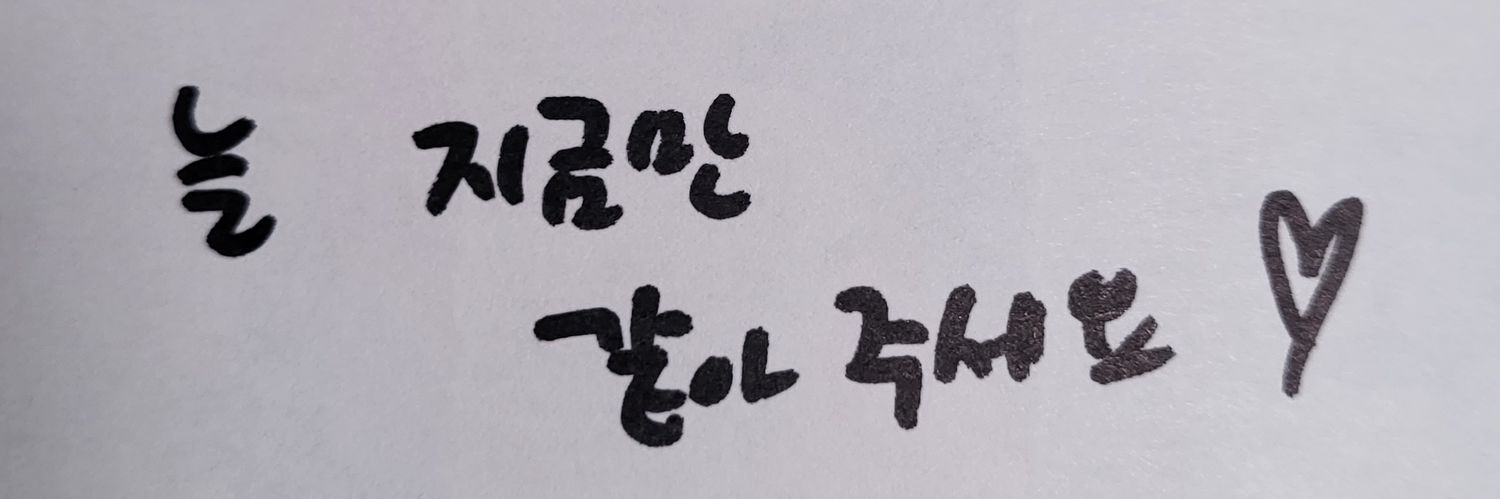 늘 지금만
같아 주세요 ♡